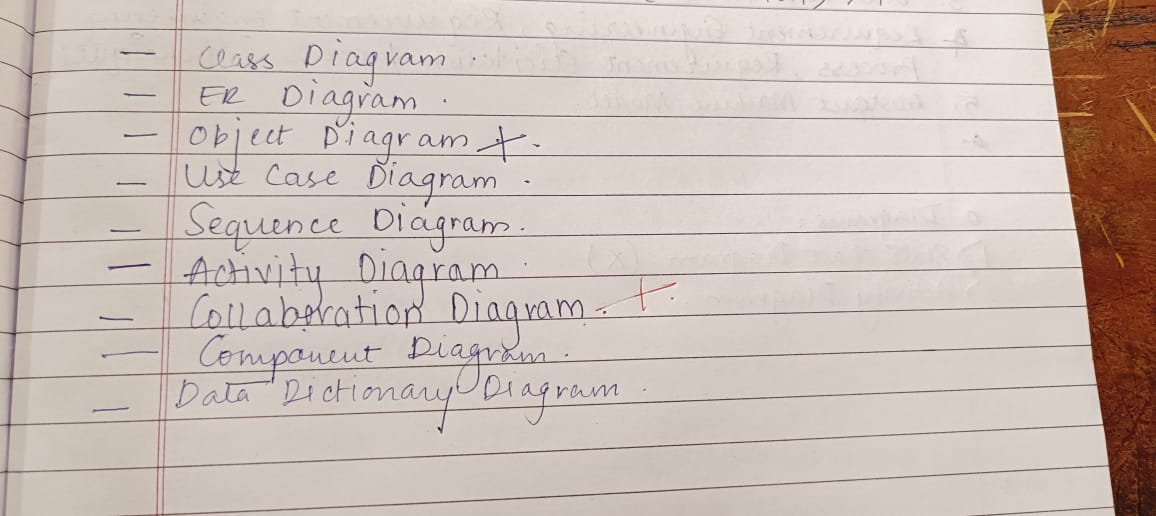 — Class Diagram .
— ER Diagram .
— Object Diagram + .
— Use Case Diagram .
— Sequence Diagram .
— Activity Diagram .
— Collaboration Diagram . +
— Component Diagram .
— Data Dictionary Diagram .